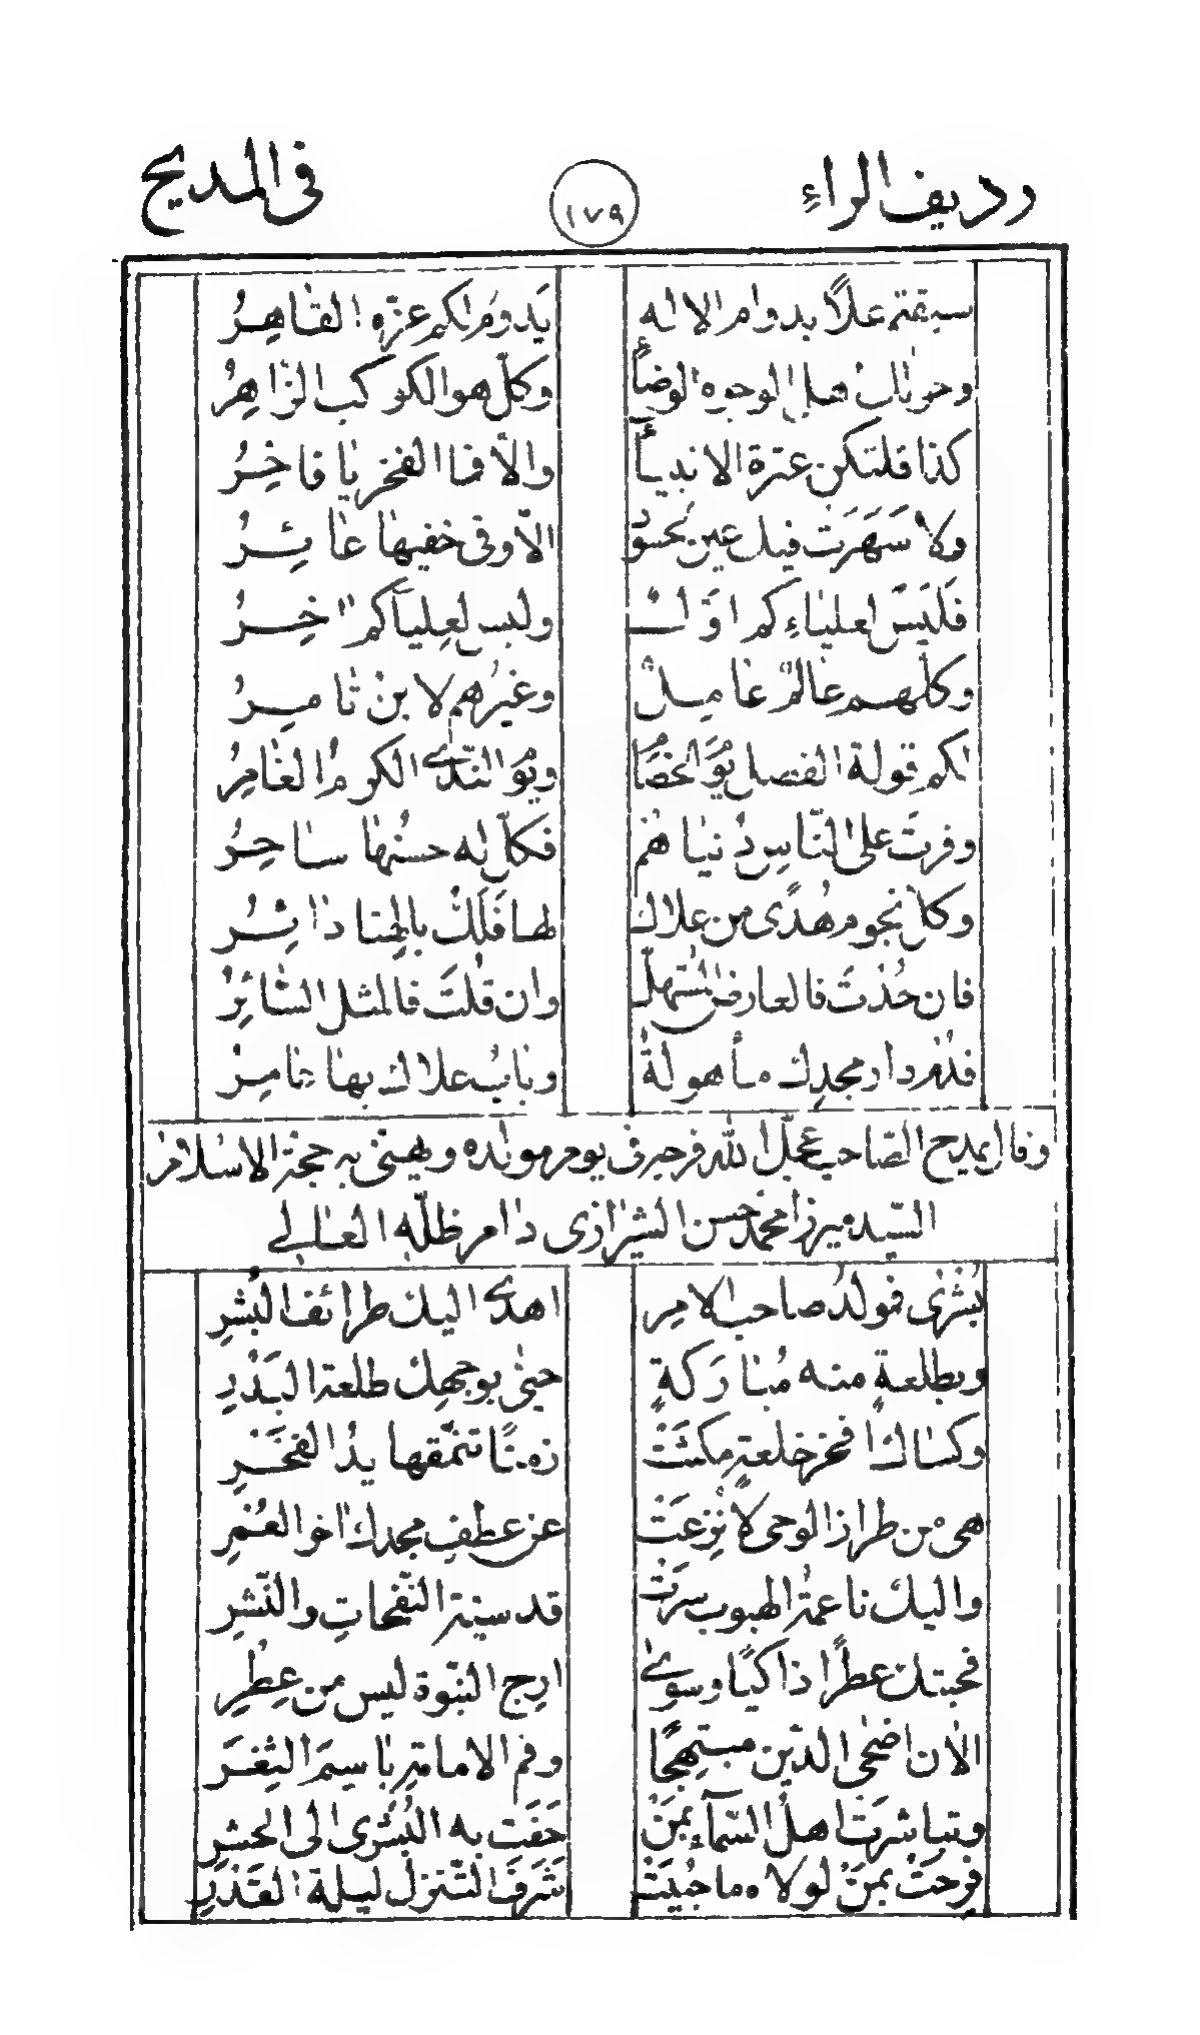 رديف الراءِ ١٧٩ فى المديح
سبقتم علًا بدوام الاله يَدومَ لكم عزّهِ القاهِرُ
وحولك اهل الوجوه الوضاءِ وكلّ هو الكوكب الزاهِرُ
كذا فلتكن عترة الانبياءِ والّا فما الفخر يا فاخِرُ
ولا سَهَرَت فيك عين الّا وفى عائِرُ
فَلَيسَ لعلياءِكم اوّلٌ وليس لعلياكم اخِرُ
وكلهم عالمٌ عاملٌ وغيرُهم لابنٌ تامِرُ
لكم قولة الفصل يوَم الخصَام ويوَم النّدى الكرم الغامِرُ
وفرتَ على النّاس دُنياهُم فكلّ له حسنُها ساحِرُ
وكلّ نجوم هُدًى من علاك لها فَلَكٌ بالهنا دائِرُ
فان جُدْتَ فالعارض المُستهلّ وان قلتَ فالمثل السّائِرُ
فذى دار مجدِك مأهولةٌ وبابُ علاك بها عامِرُ
وقال يمدح الصّاحب عجّل الله فرجه فى يوم مولده ويهنى به حجة الاسلام
السّيد ميرزا محمّد حسن الشيرازى دام ظلّه العالى
بُشرى فمولدُ صاحب الامرِ اهدى اليك طرائف البُشرِ
وبطلعةٍ منه مُبارَكةٍ حيّى بوجهك طلعة البَدْرِ
وكساك افخر خلعةٍ مكثَتْ زمنًا تنمّقها يدُ الفخْرِ
هى من طراز الوحى لا نُزعَتْ عن عطفِ مجدك اخو العُمْرِ
واليك ناعمةُ الهبوب سرَتْ قدسيّة النّفحاتِ والنّشرِ
فحبتك عطرًا ذاكيًا وسوى ارج النبّوة ليس من عِطْرِ
الان اضحى الدّين مبتهجًا وفم الامامةِ باسِمَ الثغرَ
وتباشرَت اهلُ السّماءِ بمَنْ حَفّت به البُشرى الى الحشرِ
فرِحَتْ بمَنْ لولاه ما حُبِيَتْ شَرفَ التّنزل ليلة القدْرِ